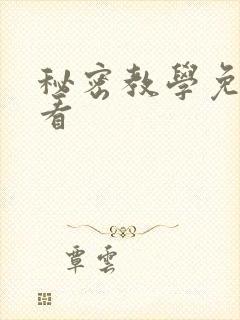 秘密教學免
看
覃雲